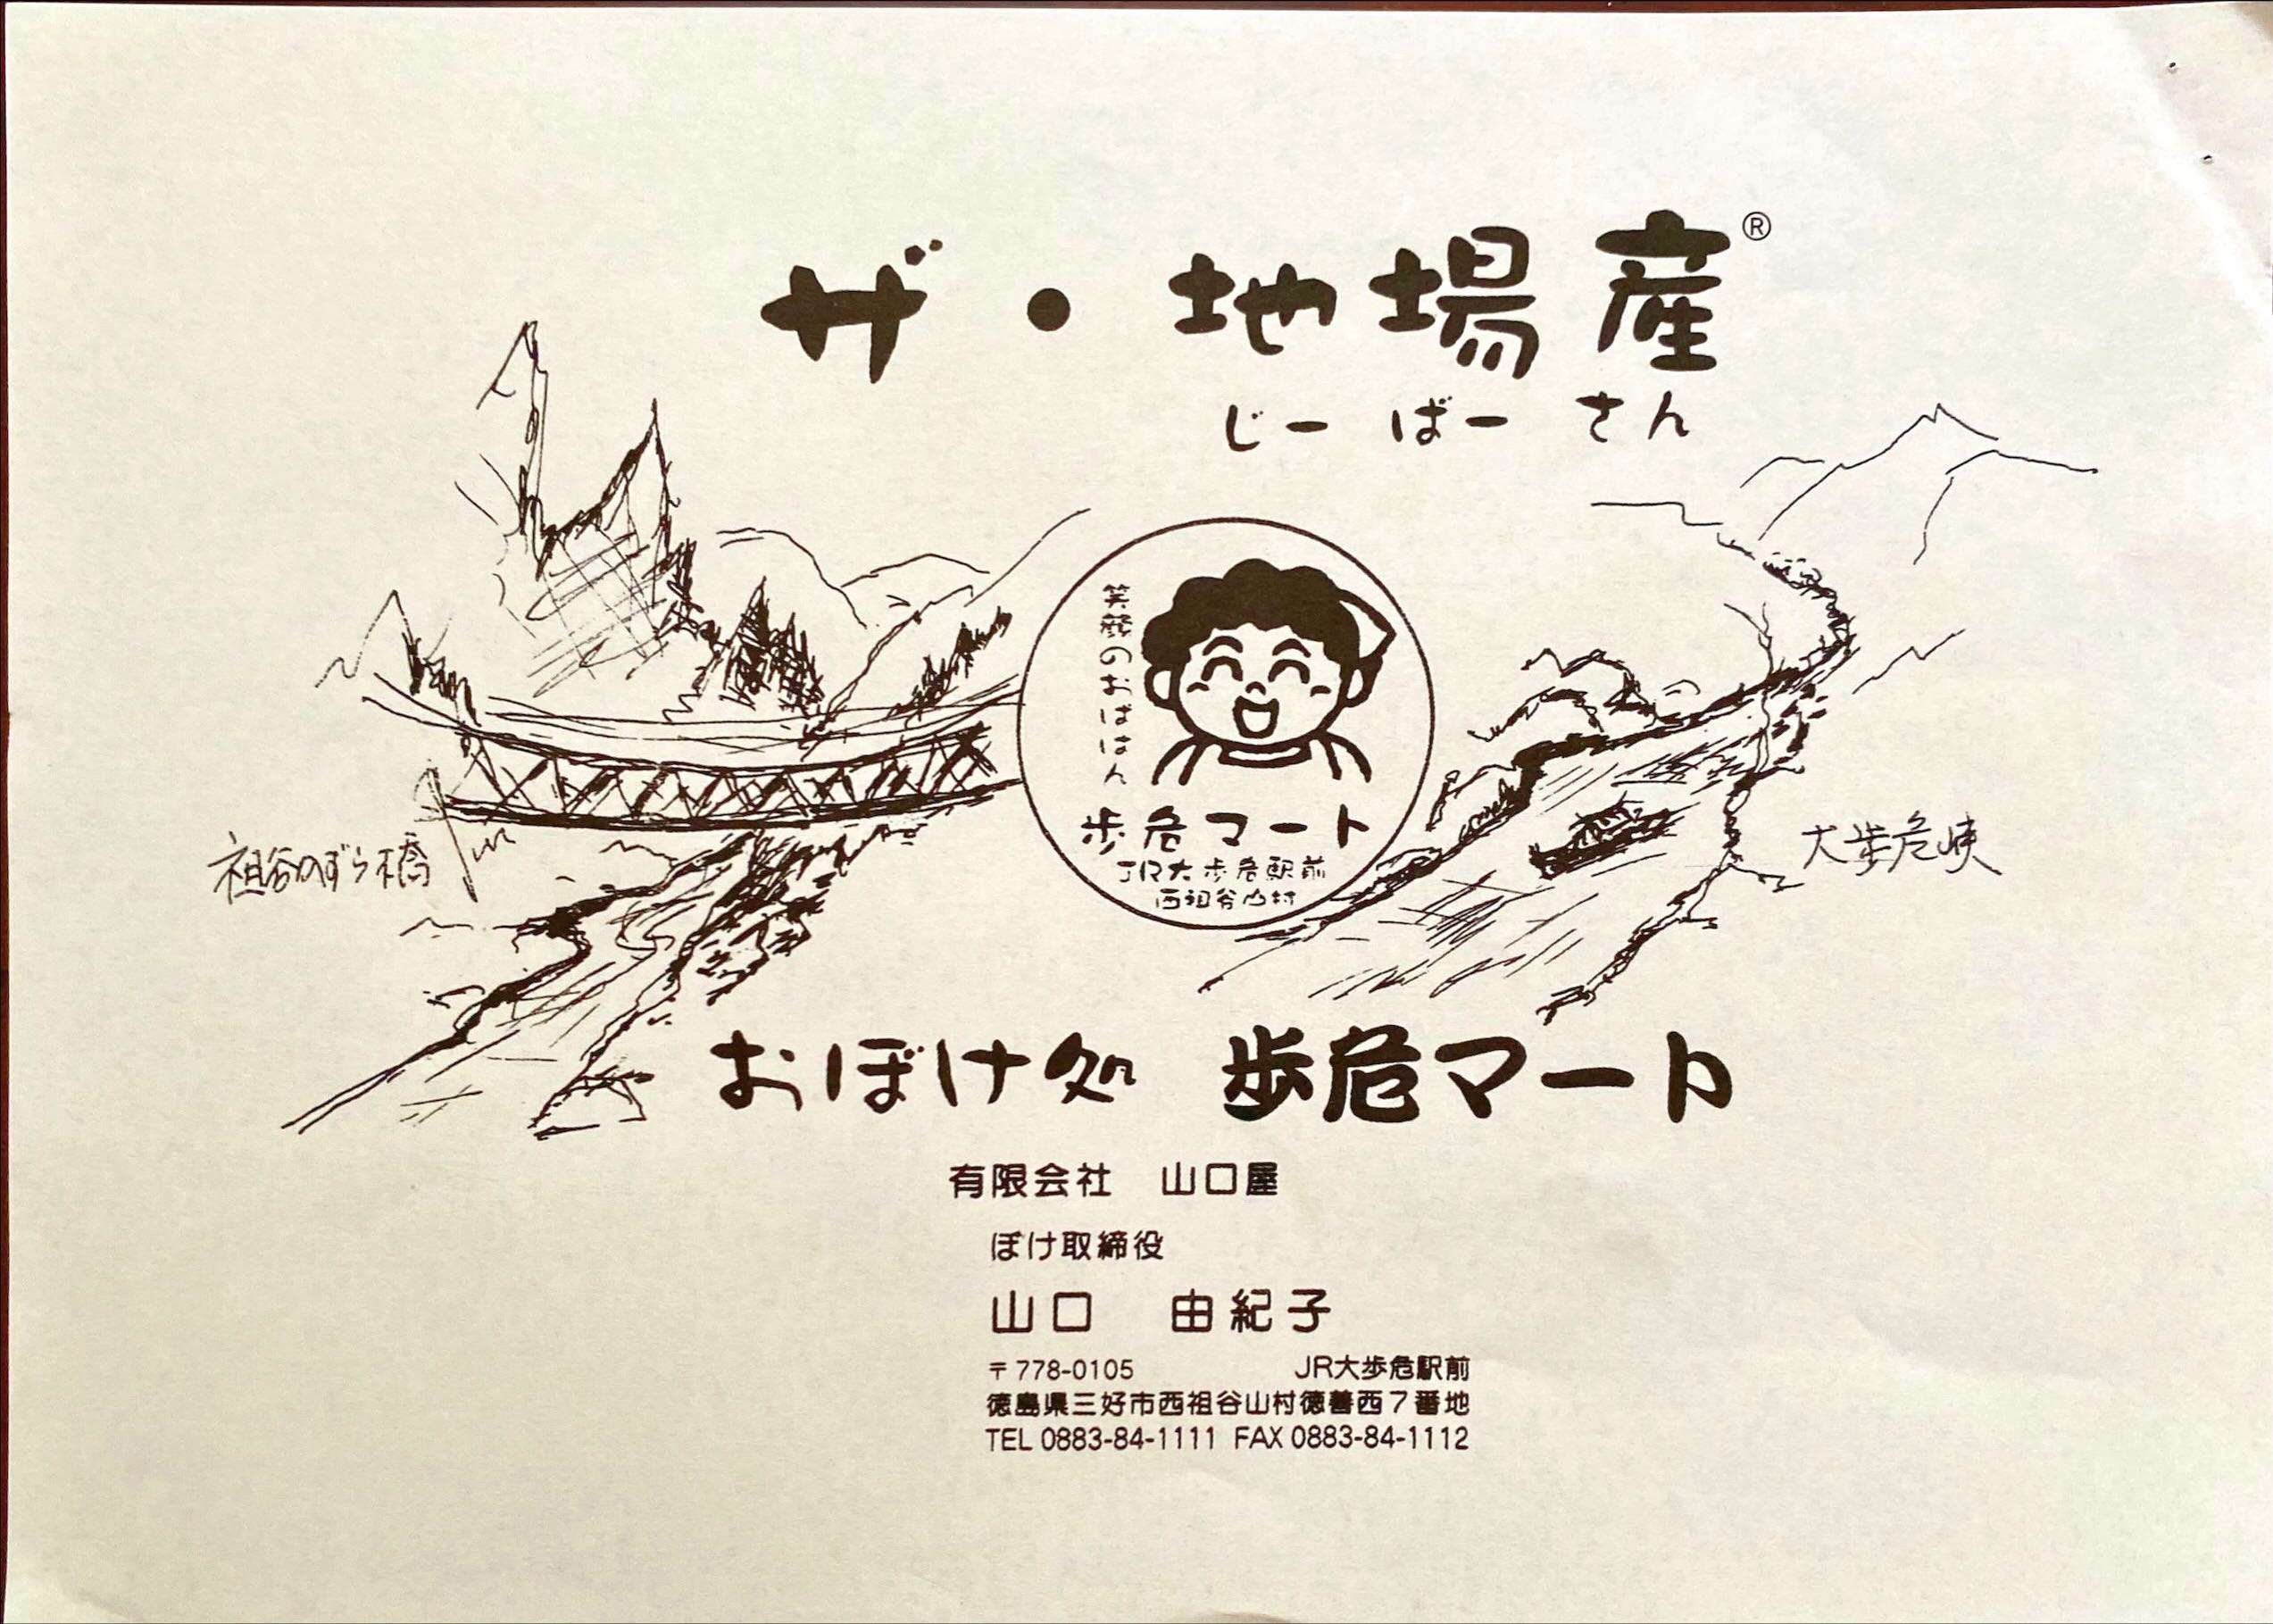 ザ・地場産®
じーばーさん
笑顔のおばはん
歩危マート
JR大歩危駅前
西祖谷山村
祖谷のかずら橋
大歩危峡
おぼけ処 歩危マート
有限会社 山口屋
ぼけ取締役
山口 由紀子
〒778-0105 JR大歩危駅前
徳島県三好市西祖谷山村徳善西7番地
TEL 0883-84-1111 FAX 0883-84-1112